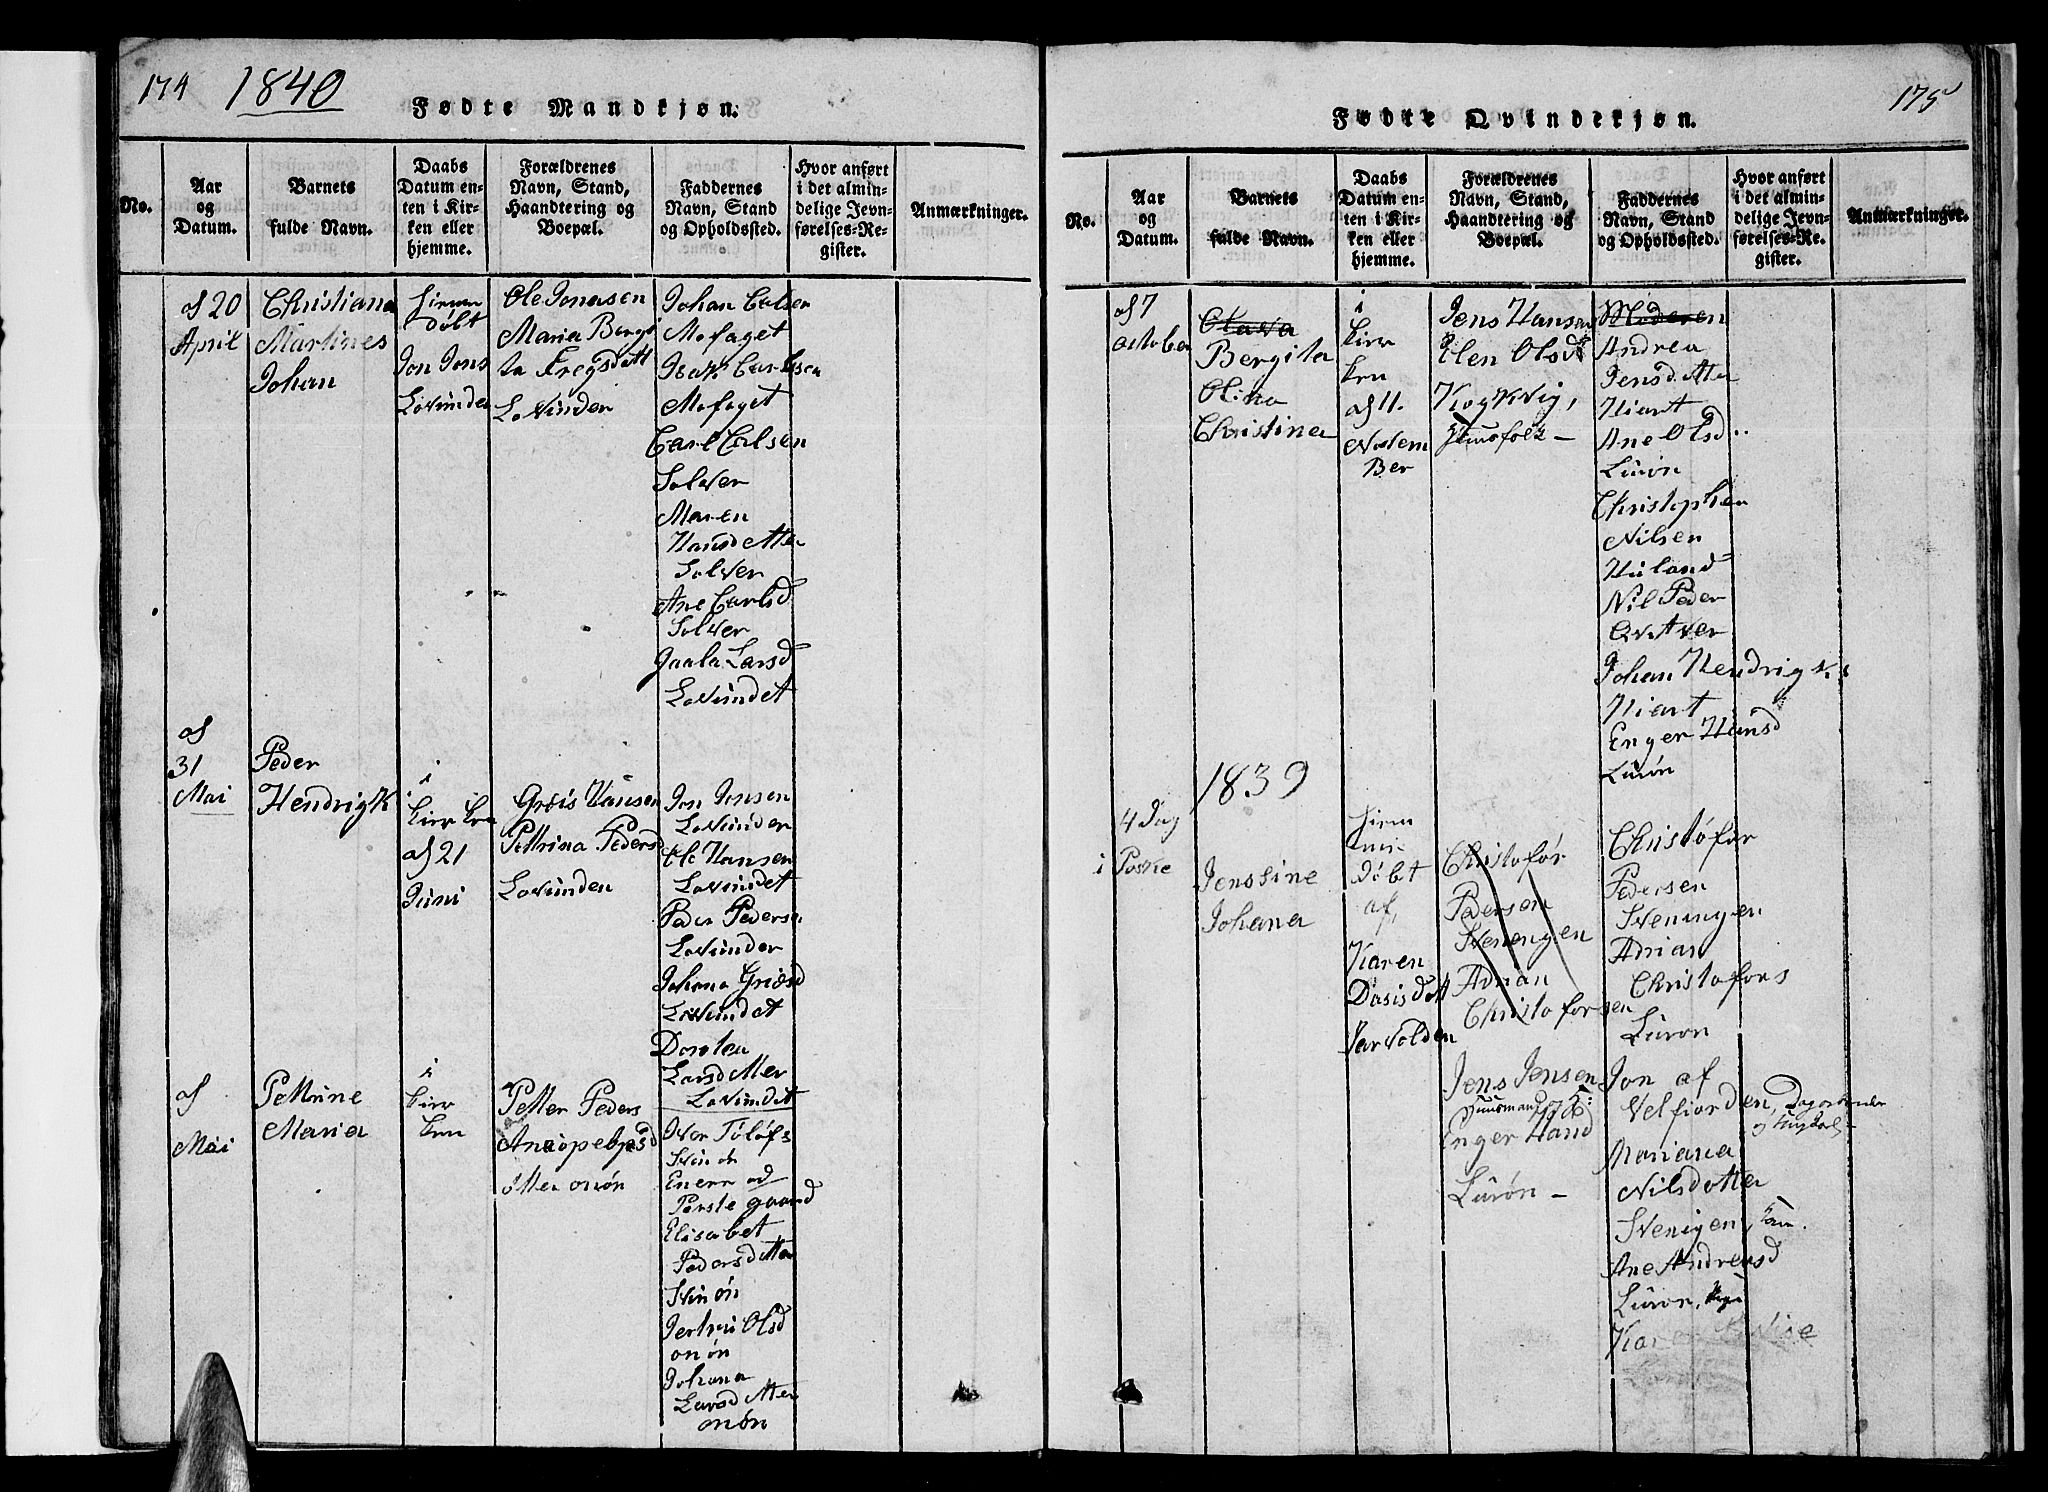 174 1840
Fødte Mandkjøn.
No.
Aar
og
Datum.
Barnets
fulde Navn.
Daabs
Datum en-
ten i Kir-
ken eller
hjemme.
Forældrenes
Navn, Stand,
Haandtering og
Boepæl.
Faddernes
Navn, Stand
og Opholdssted.
Hvor anført
i det almin-
delige Jevn-
førelses-Re-
gister.
Anmærkninger.
af 20
April
Christiana
Martines
Johan
døbt
Jon Jons
Lovunden
Ole Jonasen
Maria Bergi
ta Fregsdatt
Lovunden
Johan Calsen
Mofaget
Isak Carlsen
Mofaget
Carl Calsen
Solver
Maren
Hansdatter
Solver
Ane Carlsd
Solver
Gaala Larsd
Lovundet
af
31
Mai
Peder
Hendrigk
i
kirrken
af 21
Juni
Greis Hansen
Pettrina Pedersd
Lovunden
Jon Jonsen
Lovunden
Ole Hansen
Lovundet
Peder Pedersen
Lovunder
Johana Greisd
Lovundet
Dorotea
Larsdatter
Lovundet
af
Mai
Pettrine
Maria
i
kirr
ken
Petter Peders
otter onøn
Iver Tolofs
Enerr
Perstegaard
Elisabet
Pedersdatter
Jertrui Olsd
onøn
Johana
Larsdatter
onøn
175
Fødte Qvindekjøn.
No.
Aar
og
Datum.
Barnets
fulde Navn.
Daabs
Datum en-
ten i Kir-
ken eller
hjemme.
Forældrenes
Navn, Stand,
Haandtering og
Boepæl.
Faddernes
Navn, Stand
og Opholdssted.
Hvor anført
i det almin-
delige Jevn-
førelses-Re-
gister.
Anmærkninger.
af 7
october
Olava
Bergita
Olina
Christina
i
kirr
ken
af 11.
Novem
Ber
Jens Hansen
Elen Olsd
Kogkvig,
Huusfolk –
Moderen
Andrea
Jensdatter
Hiart
Ane Olsd..
Lurøn
Christopher
Nilsen
Huland
Nil Peder
Qvitver
Johan Hendrigks
Hiart
Enger Hansd
Lurøn
1839
4 Dag
i Poske
Jenssine
Johana
døbt
af,
Karen
Dasisdatt
Varvolden
Christofór
Pedersen
Svenengen
Adrian
Christoforsen
Jens Jensen
Huusmand og H:
Enger Hand
Lurøn –
Christófor
Pedersen
Sveningen
Adrian
Christofors
Lurøn
Jon af
Velfiorden,
Mariana
Nilsdatter
Svenigen,
Ane Andrensd
Lurøn,